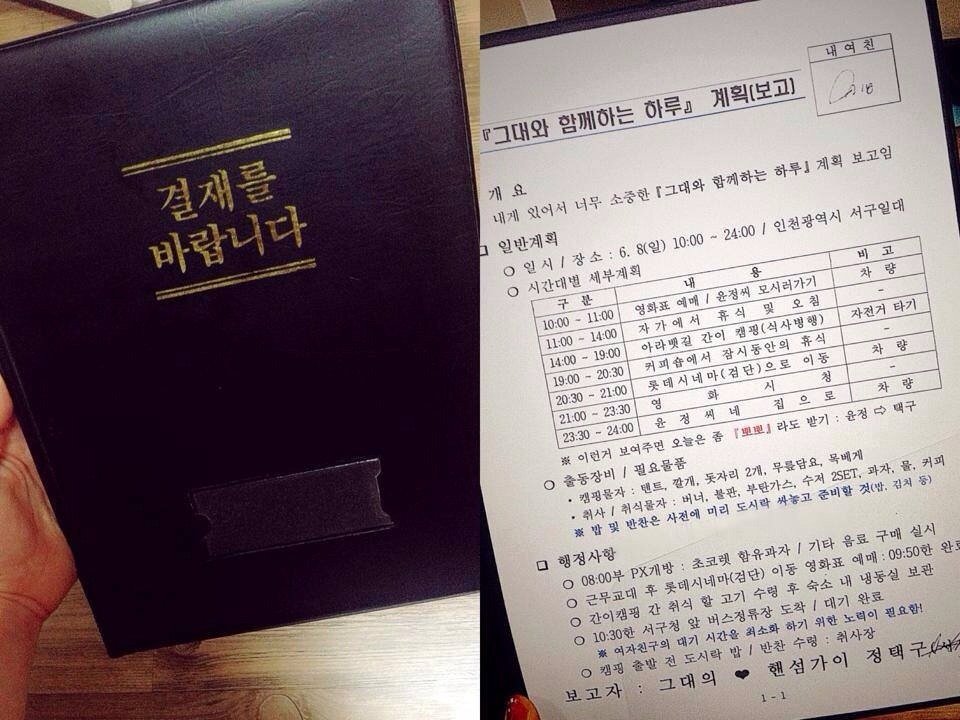 결재를
바랍니다
내 여 친
『그대와 함께하는 하루』 계획(보고)
개 요
내게 있어서 너무 소중한『그대와 함께하는 하루』계획 보고임
□ 일반계획
○ 일 시 / 장 소 : 6. 8(일) 10:00 ~ 24:00 / 인천광역시 서구일대
○ 시간대별 세부계획
구 분 내 용 비 고
10:00 ~ 11:00 영화표 예매 / 윤정씨 모시러가기 차 량
11:00 ~ 14:00 자가에서 휴식 및 오침 -
14:00 ~ 19:00 아라뱃길 간이 캠핑(식사병행) 자전거 타기
19:00 ~ 20:30 커피숍에서 잠시동안의 휴식 -
20:30 ~ 21:00 롯데시네마(검단)으로 이동 차 량
21:00 ~ 23:30 영 화 시 청 -
23:30 ~ 24:00 윤 정 씨 네 집 으 로 차 량
※ 이런거 보여주면 오늘은 좀 『뽀뽀』라도 받기 : 윤정 ⇨ 택구
○ 출동장비 / 필요물품
• 캠핑물자 : 텐트, 깔개, 돗자리 2개, 무릎담요, 목베게
• 취사 / 취식물자 : 버너, 불판, 부탄가스, 수저 2SET, 과자, 물, 커피
※ 밥 및 반찬은 사전에 미리 도시락 싸놓고 준비할 것(밥, 김치 등)
□ 행정사항
○ 08:00부 PX개방 : 초코렛 함유과자 / 기타 음료 구매 실시
○ 근무교대 후 롯데시네마(검단) 이동 영화표 예매 : 09:50한 완료
○ 간이캠핑 간 취식 할 고기 수령 후 숙소 내 냉동실 보관
○ 10:30한 서구청 앞 버스정류장 도착 / 대기 완료
※ 여자친구의 대기 시간을 최소화 하기 위한 노력이 필요함!
○ 캠핑 출발 전 도시락 밥 / 반찬 수령 : 취사장
보고자 : 그대의 ♥ 핸섬가이 정택구
1 - 1